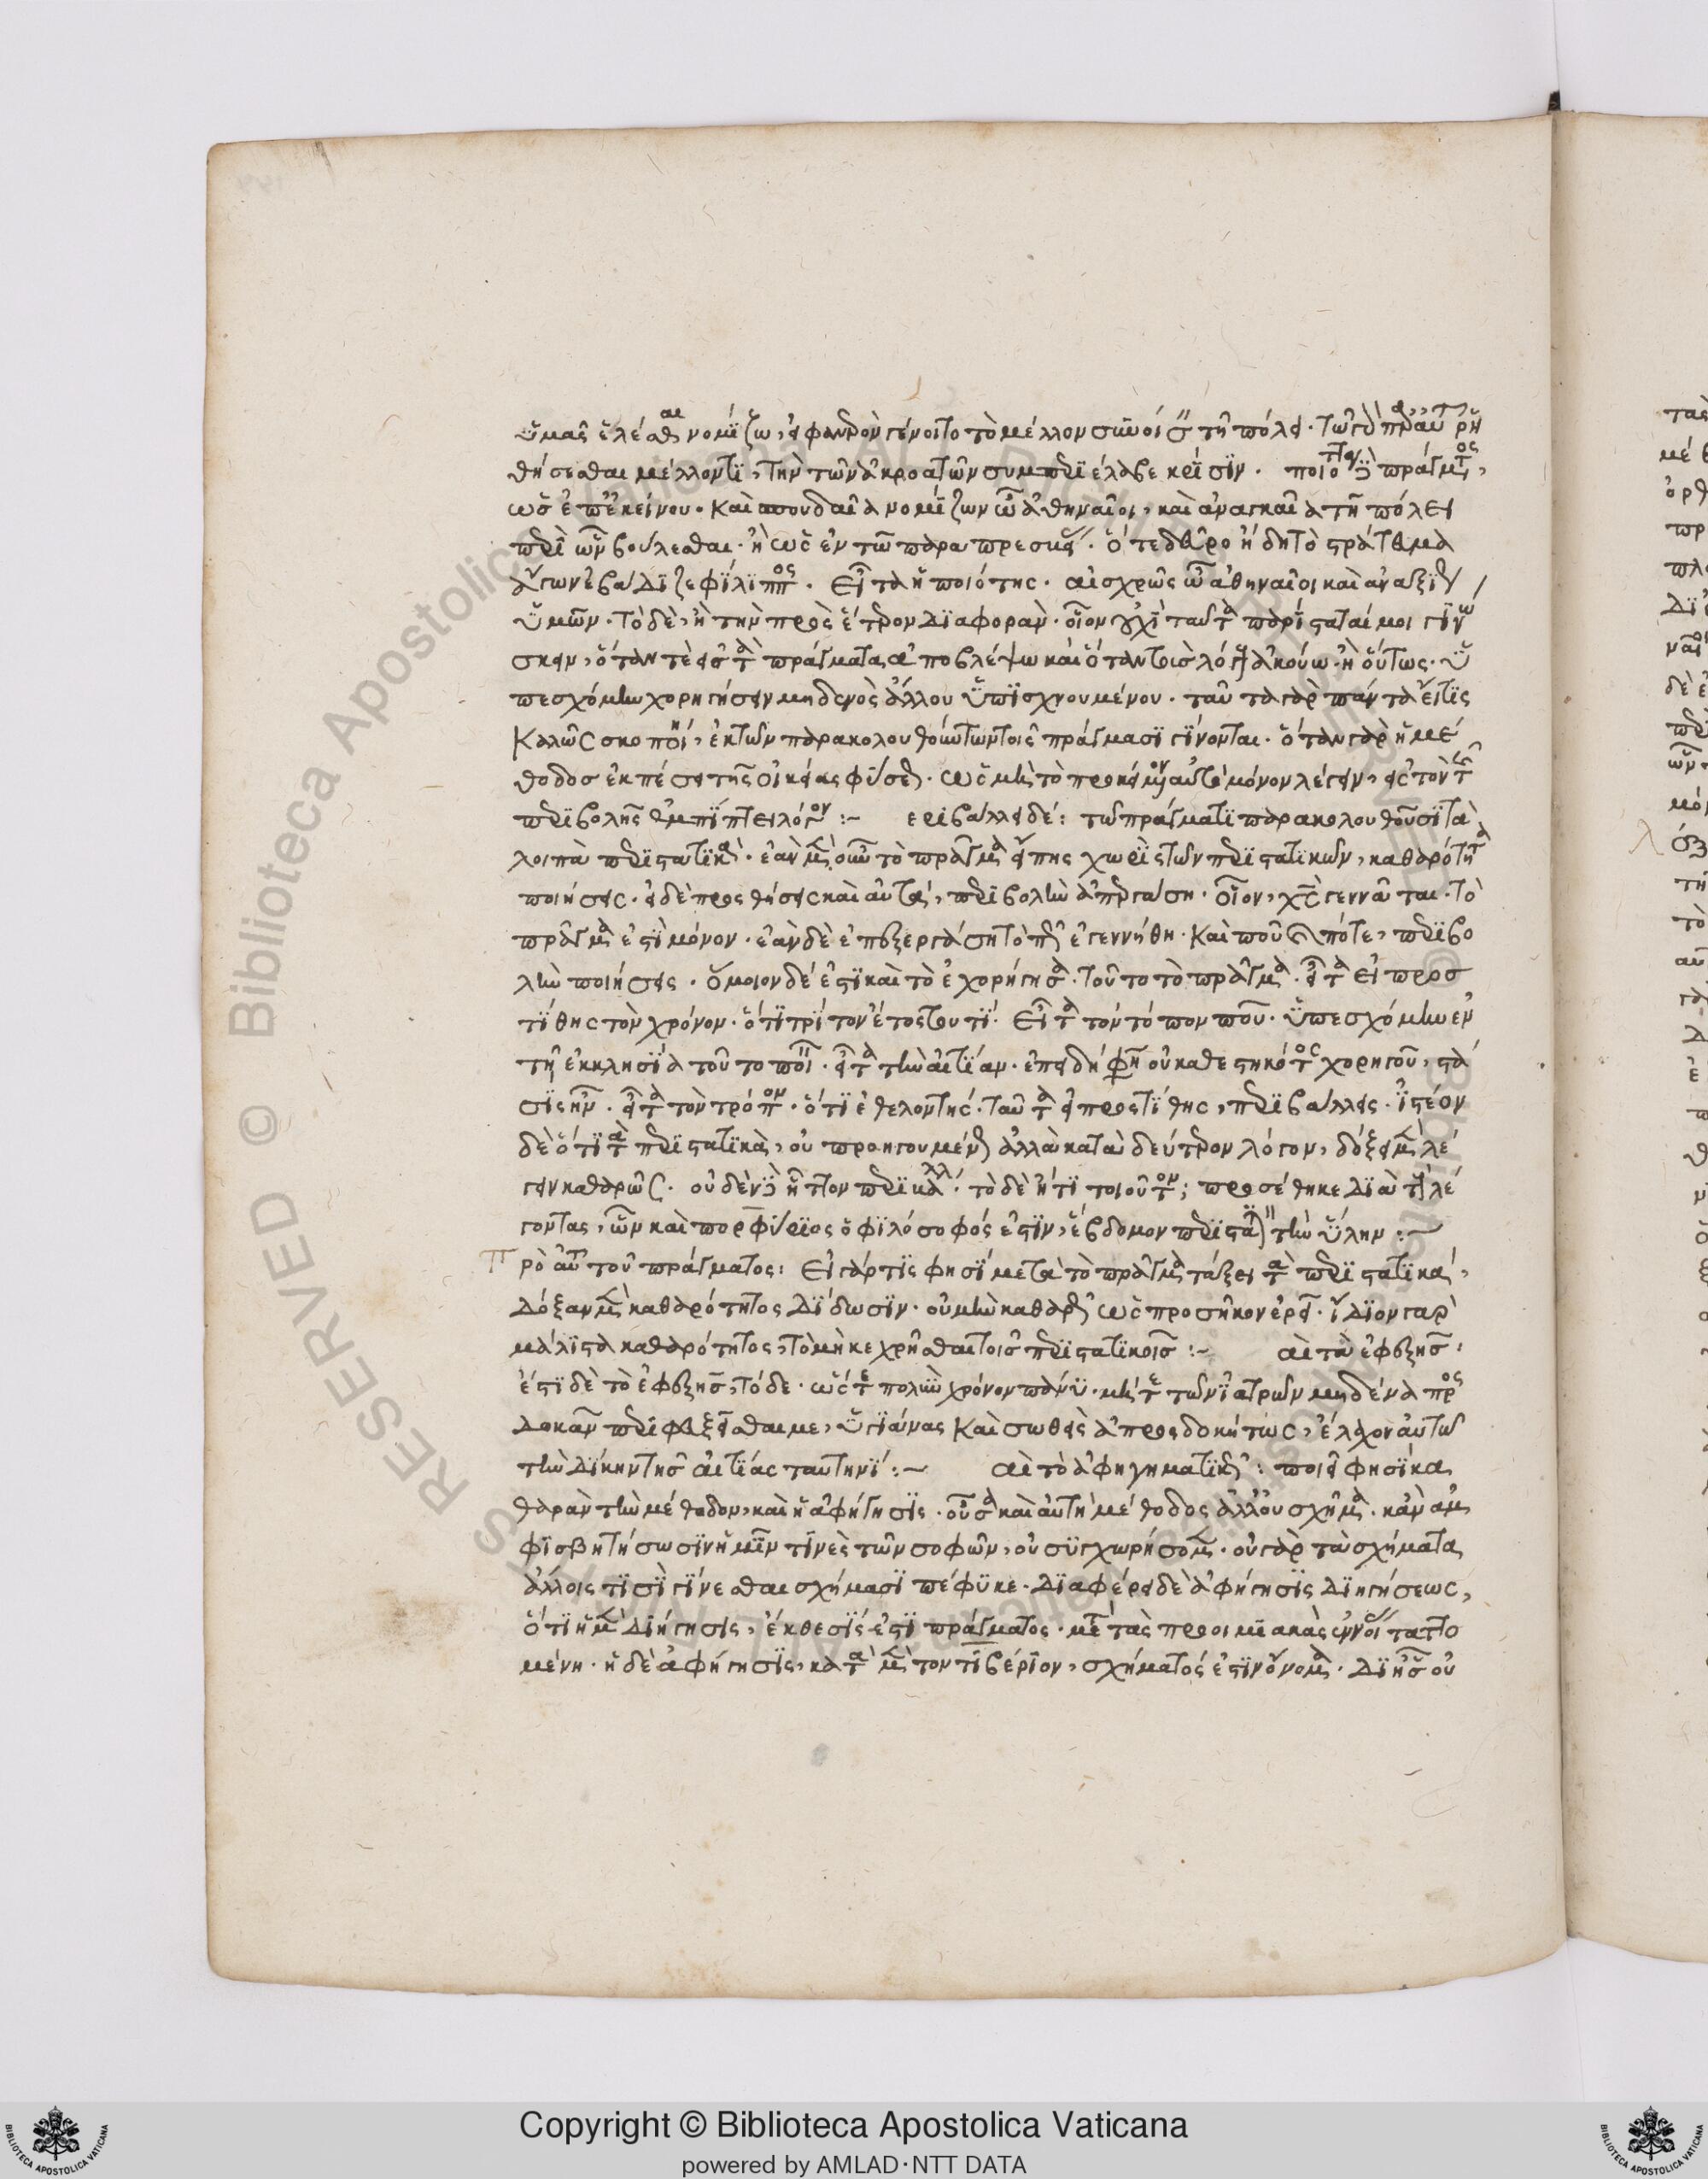 ὑμᾶς ἑλέσθαι νομίζω, εἰ φανερὸν γένοιτο τὸ μέλλον συνοίσειν τῇ πόλει. τῶ γὰρ
θήσεσθαι μέλλοντι, τὴν τῶν ἀκροατῶν συμπεριέλαβε κρίσιν. ποιότητα πράγματος,
ὡς ἐπ' ἐκείνου. καὶ σπουδαῖα νομίζων ὦ ἀθηναῖοι, καὶ ἀναγκαῖα τῇ πόλει
περὶ ὧν βούλεσθαι. ἢ ὡς ἐν τῶ παραπρεσβείας. ὅτε δεῦρο ἤδη τὸ στράτευμα
ἄγων ἐβάδιζε φίλιππος. εἶτα ἡ ποιότης. αἰσχρῶς ὦ ἀθηναῖοι καὶ ἀναξίως
ὑμῶν. τὸ δὲ, ἢ τὴν πρὸς ἕτερον διαφοράν. οἷον οὐχὶ ταὐτὰ παρίσταταί μοι γινώ
σκειν, ὅταν τε εἰς τὰ πράγματα ἀποβλέψω καὶ ὅταν πρὸς λόγους ἀκούω. ἢ οὕτως. ὑ
πεσχόμην χορηγήσειν μηδενὸς ἄλλου ὑπισχνουμένου. ταῦτα γὰρ πάντα εἴ τις
καλῶς σκοποίη, ἐκ τῶν παρακολουθούντων τοῖς πράγμασι γίνονται. ὅταν γὰρ ἡ μέ
θοδος ἐκπέσῃ τῆς οἰκείας φύσεως. ὡς μὴ τὸ προκείμενον αὐτὸ μόνον λέγειν, εἰς τὸν τῆς
περιβολῆς ἐμπίπτει λόγον :~ εριβάλλει δέ: τῶ πράγματι παρακολουθοῦσι τὰ
λοιπὰ περιστατικά. ἐὰν μὲν οὖν τὸ πρᾶγμα εἴπῃς χωρὶς τῶν περιστατικῶν, καθαρότητα
ποιήσεις. εἰ δὲ προσθήσεις καὶ αὐτά, περιβολὴν ἀπεργάσῃ. οἷον, χς γεννᾶται. τὸ
πρᾶγμα ἐστὶ μόνον. ἐὰν δὲ ἐπεξεργάσῃ τὸ πῶς ἐγεννήθη. καὶ ποῦ καὶ πότε, περιβο
λὴν ποιήσεις. ὅμοιον δέ ἐστι καὶ τὸ ἐχορήγησα. τοῦτο τὸ πρᾶγμα. εἶτα εἰ προσ
τίθης τὸν χρόνον. ὅτι τρίτον ἔτος τουτί. εἶτα τὸν τόπον ποῦ. ὑπεσχόμην ἐν
τῇ ἐκκλησία τοῦτο ποιεῖν. εἶτα τὴν αἰτίαν. ἐπειδή φησιν οὐ καθεστηκότος χορηγοῦ, στά
σις ἦν. εἶτα τὸν τρόπον. ὅτι ἐθελοντής. ταῦτα εἰ προστίθης, περιβάλλεις. ἰστέον
δὲ ὅτι τὰ περιστατικὰ, οὐ προηγουμένως ἀλλὰ κατὰ δεύτερον λόγον, δόξει μὲν λέ
γειν καθαρῶς. οὐδὲν δὲ ἧττον περιβάλλει. τὸ δὲ ἤ τι τοιοῦτον; προσέθηκε διὰ τοὺς λέ
γοντας, ὧν καὶ πορφύριος ὁ φιλόσοφός ἐστιν, ἕβδομον περιστατικὸν τὴν ὕλην :~
Πρὸ αὐτοῦ τοῦ πράγματος: εἰ γάρ τις φησί μετὰ τὸ πρᾶγμα τάξει τὰ περιστατικά,
δόξαν μὲν καθαρότητος δίδωσιν. οὐ μὴν καθαρῶς ὡς προσῆκον ἐρεῖ. ἴδιον γὰρ
μάλιστα καθαρότητος, τὸ μὴ κεχρῆσθαι τοῖς περιστατικοῖς :~ αὶ τὰ ἐφεξῆς.
ἔστι δὲ τὸ ἐφεξῆς, τόδε. ὥστε πολὺν χρόνον πάνυ. μήτε τῶν ἰατρῶν μηδένα προσ
δοκᾶν περιφεύξεσθαι με, ὑγιάνας καὶ σωθεὶς ἀπροσδοκήτως, ἔλαχον αὐτῶ
τὴν δίκην τῆς αἰτίας ταυτηνί :~ αὶ τὸ ἀφηγηματικῶς: ποιεῖ φησὶ κα
θαρὰν τὴν μέθοδον, καὶ ἡ ἀφήγησις. οὖσα καὶ αὐτὴ μέθοδος ἀλλ' οὐ σχῆμα. κἂν ἀμ
φισβητήσωσιν ἡμῖν τινὲς τῶν σοφῶν, οὐ συγχωρήσομεν. οὐ γὰρ τὰ σχήματα
ἄλλοις τισὶ γίνεσθαι σχήμασι πέφυκε. διαφέρει δὲ ἀφήγησις διηγήσεως,
ὅτι ἡ μὲν διήγησις, ἔκθεσίς ἐστι πράγματος. μετὰ τὰς προοιμιακὰς ἐννοίας ταττο
μένη. ἡ δὲ ἀφήγησις, κατὰ μὲν τὸν τιβέριον, σχήματός ἐστιν ὄνομα. δι' ἧς οὐ